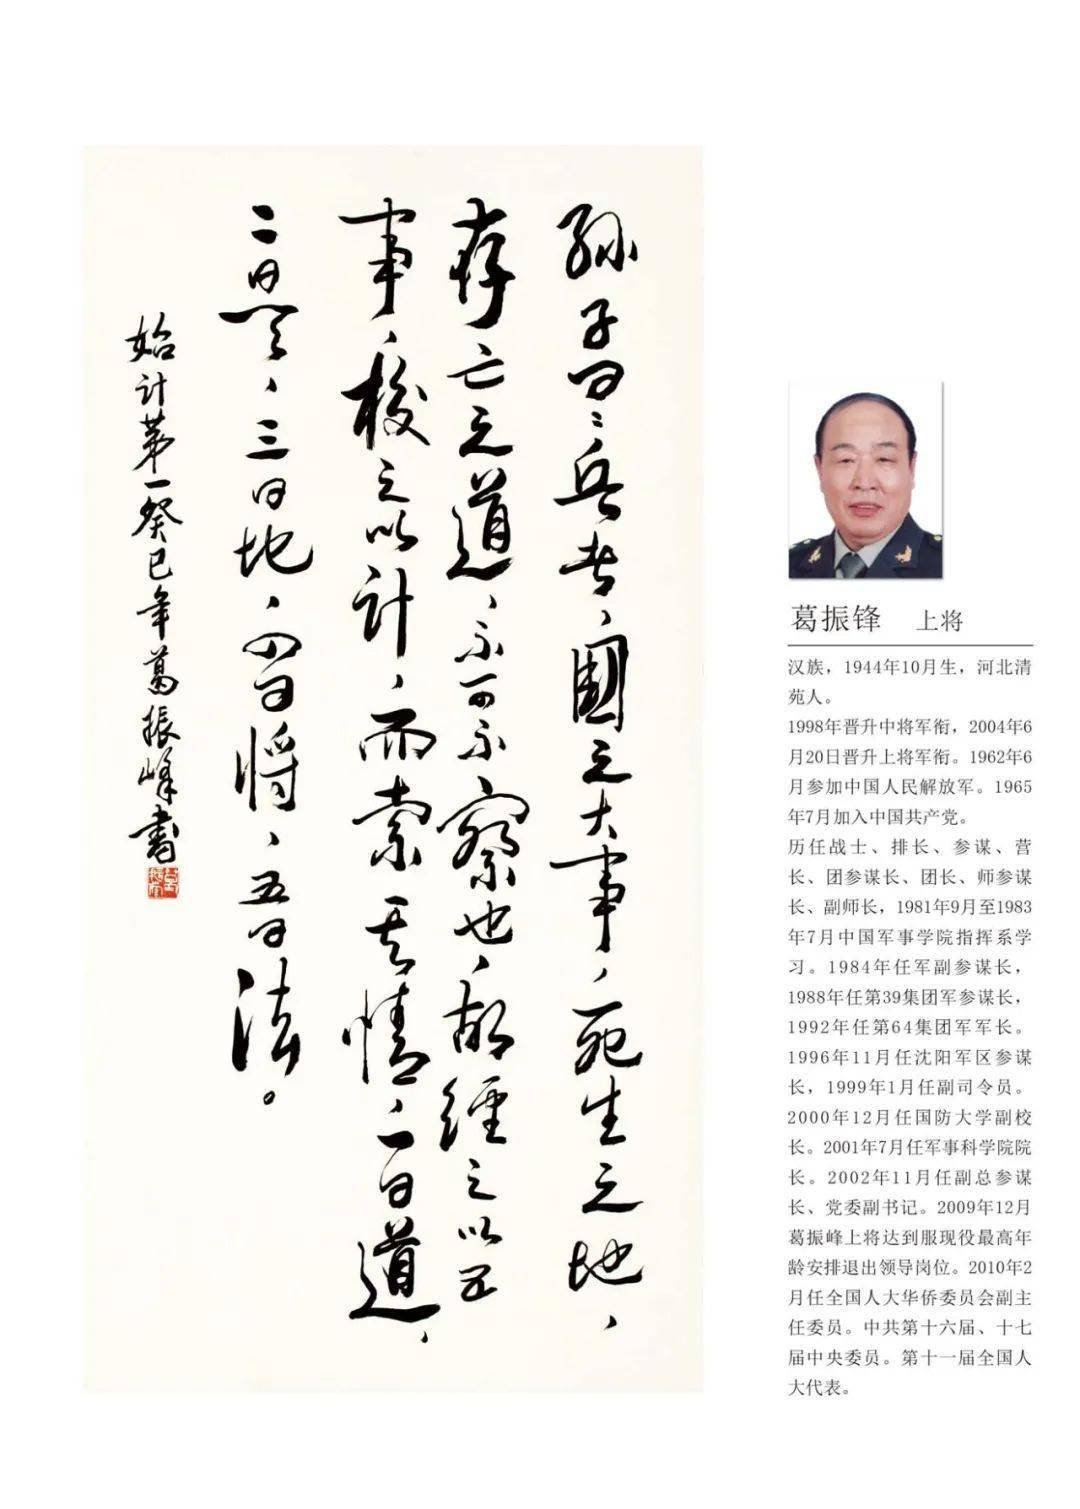 孙子曰：兵者，國之大事，死生之地，
存亡之道，不可不察也，故經之以五
事，校之以计，而索其情，一曰道，
二曰天，三曰地，四曰将，五曰法。
始计第一癸巳年葛振峰书
葛振锋 上将
汉族，1944年10月生，河北清
苑人。
1998年晋升中将军衔，2004年6
月20日晋升上将军衔。1962年6
月参加中国人民解放军。1965
年7月加入中国共产党。
历任战士、排长、参谋、营
长、团参谋长、团长、师参谋
长、副师长，1981年9月至1983
年7月中国军事学院指挥系学
习。1984年任军副参谋长，
1988年任第39集团军参谋长，
1992年任第64集团军军长。
1996年11月任沈阳军区参谋
长，1999年1月任副司令员。
2000年12月任国防大学副校
长。2001年7月任军事科学院院
长。2002年11月任副总参谋
长、党委副书记。2009年12月
葛振峰上将达到服现役最高年
龄安排退出领导岗位。2010年2
月任全国人大华侨委员会副主
任委员。中共第十六届、十七
届中央委员。第十一届全国人
大代表。